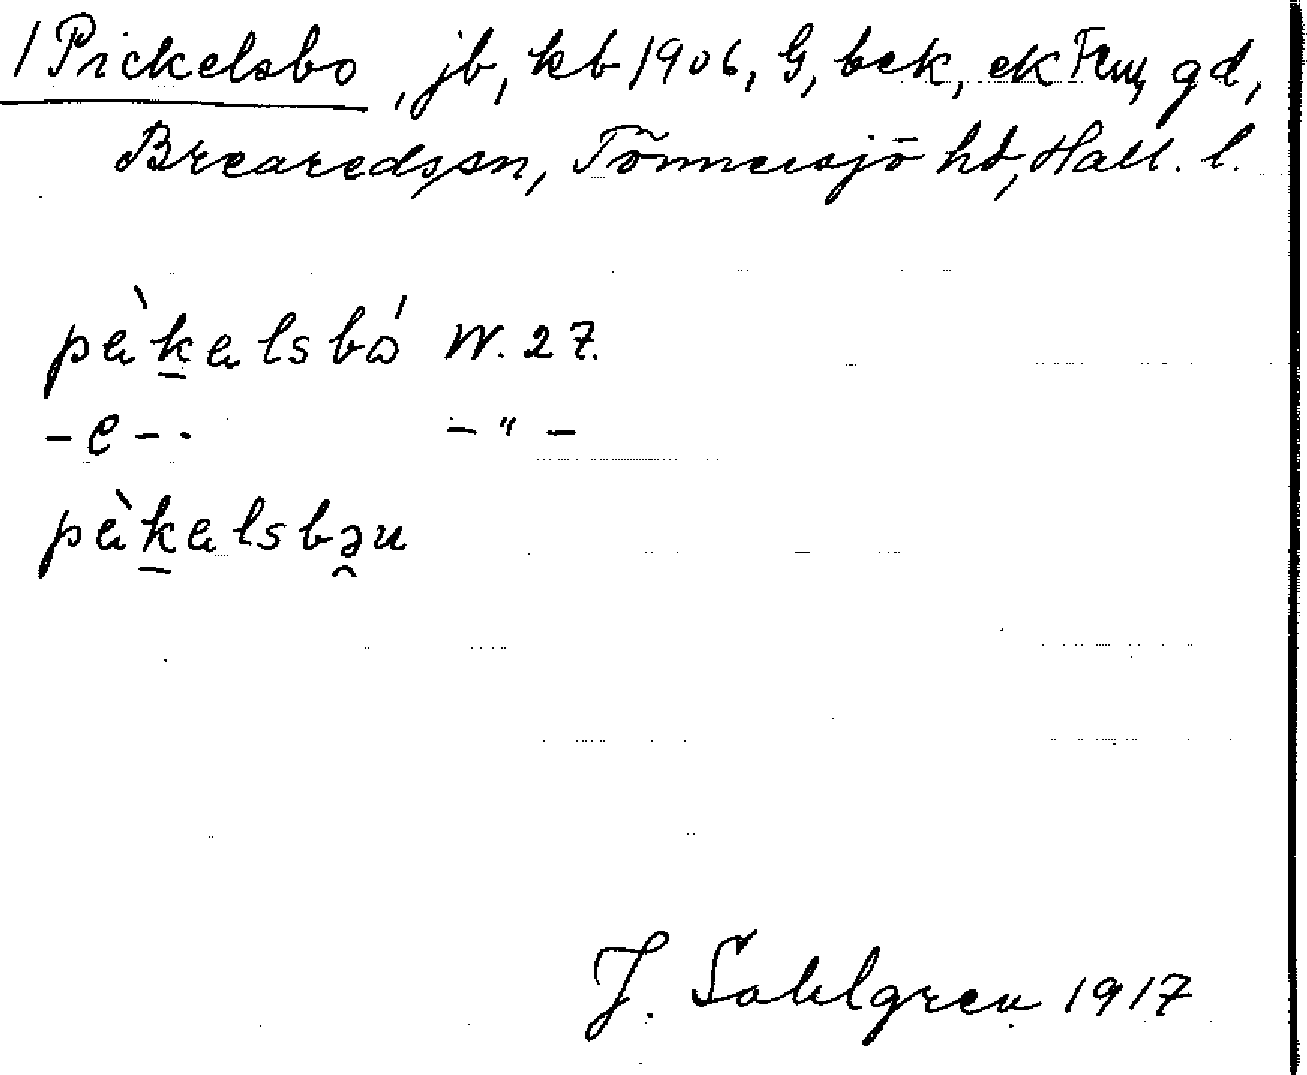 1 Pickelsbo, jb, kb 1906, G, bek, ek Fru, gd,
Brearedssn, Tönnersjö hd, Hall. l.
pèk̠elsbó W. 27.
-e-- -"-
pèk̠elsbə̯u
J. Sahlgren 1917